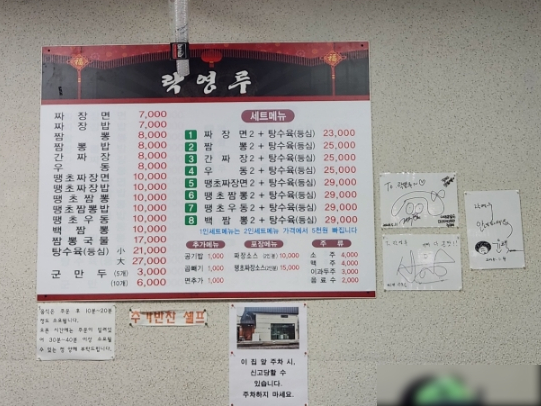 락영루
짜장면 7,000
짜장밥 7,000
짬뽕 8,000
짬뽕밥 8,000
간짜장 8,000
우동 8,000
땡초짜장면 10,000
땡초짜장밥 10,000
땡초짬뽕 10,000
땡초짬뽕밥 10,000
땡초우동 10,000
백짬뽕 10,000
짬뽕국물 17,000
탕수육(등심) 小 21,000
大 27,000
군만두 (5개) 3,000
(10개) 6,000
세트메뉴
1 짜장면2 + 탕수육(등심) 23,000
2 짬뽕2 + 탕수육(등심) 25,000
3 간짜장2 + 탕수육(등심) 25,000
4 우동2 + 탕수육(등심) 25,000
5 땡초짜장면2 + 탕수육(등심) 29,000
6 땡초짬뽕2 + 탕수육(등심) 29,000
7 땡초우동2 + 탕수육(등심) 29,000
8 백짬뽕2 + 탕수육(등심) 29,000
1인세트메뉴는 2인세트메뉴 가격에서 5천원 빠집니다
추가메뉴
공기밥 1,000
곱빼기 1,000
면추가 1,000
포장메뉴
짜장소스 10,000
땡초짜장소스 15,000
주류
소주 4,000
맥주 4,000
이과두주 3,000
음료수 2,000
음식은 주문 후 10분-20분
정도 소요됩니다.
이 30분-40분 이상 소요될
수 있는 점 양해 부탁드립니다.
추가반찬 셀프
이 집 앞 주차 시,
신고당할 수
있습니다.
주차하지 마세요.